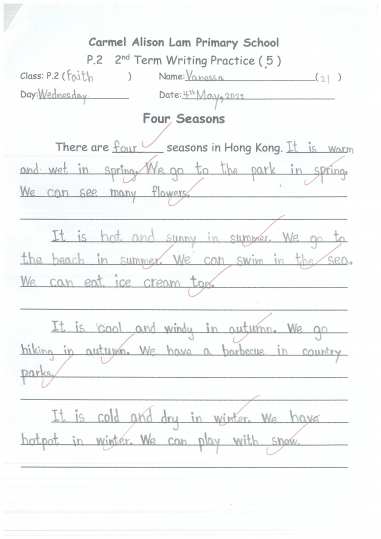 Carmel Alison Lam Primary School
P.2 2nd Term Writing Practice (5)
Class: P.2 (Faith ) Name: Vanessa (21)
Day: Wednesday Date: 4th May, 2022
Four Seasons
There are four seasons in Hong Kong. It is warm
and wet in spring. We go to the park in spring.
We can see many flowers.
It is hot and sunny in summer. We go to
the beach in summer. We can swim in the sea.
We can eat ice cream too.
It is cool and windy in autumn. We go
hiking in autumn. We have a barbecue in country
parks.
It is cold and dry in winter. We have
hotpot in winter. We can play with snow.